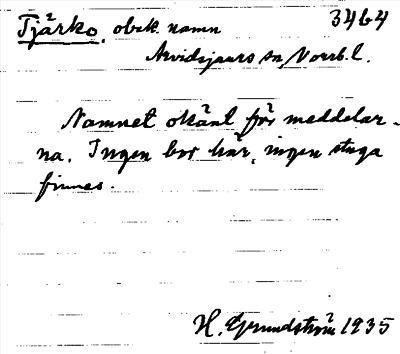 Tjärko, obek. namn 3464
Arvidsjaurs sn, Norrb. l.
Namnet okänt för meddelar-
na. Ingen bor här, ingen stuga
finnes.
H. Grundström 1935